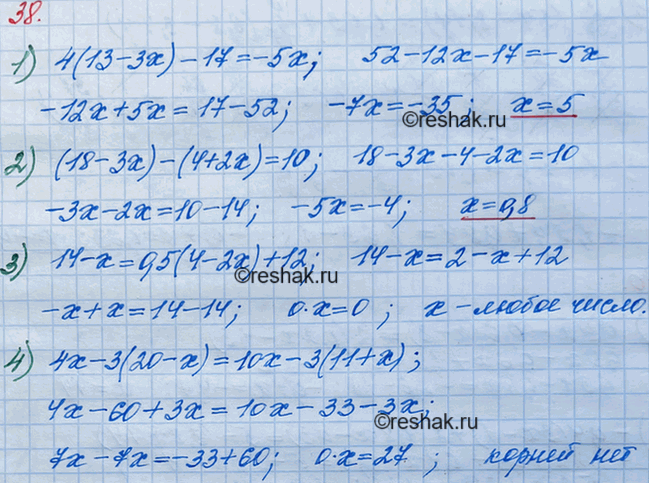 38.
1) 4(13-3x)-17=-5x; 52-12x-17=-5x
-12x+5x=17-52; -7x=-35; x=5
©reshak.ru
2) (18-3x)-(4+2x)=10; 18-3x-4-2x=10
-3x-2x=10-14; -5x=-4; x=0,8
3) 14-x=0,5(4-2x)+12; 14-x=2-x+12
©reshak.ru
-x+x=14-14; 0·x=0; x-любое число.
4) 4x-3(20-x)=10x-3(11+x);
4x-60+3x=10x-33-3x;
©reshak.ru
7x-7x=-33+60; 0·x=27; корней нет